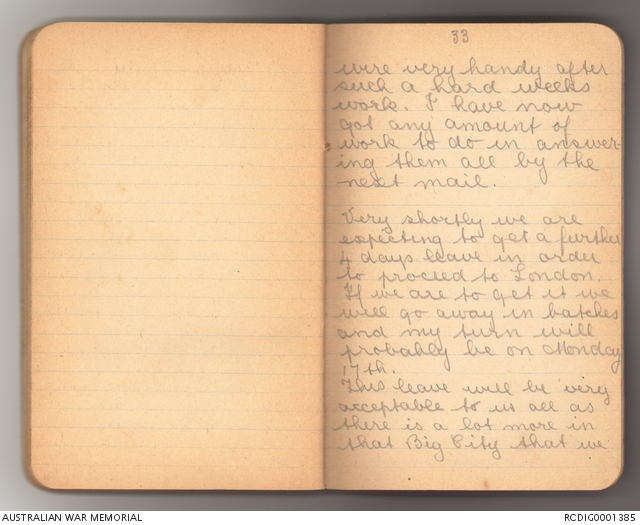 33
were very handy after
such a hard weeks
work. I have now
got any amount of
work to do in answer-
ing them all by the
next mail.
Very shortly we are
expecting to get a further
4 days leave in order
to proceed to London.
If we are to get it we
will go away in batches
and my turn will
probably be on Monday
17th.
This leave will be very
acceptable to us all as
there is a lot more in
that Big City that we
AUSTRALIAN WAR MEMORIAL
RCDIG0001385